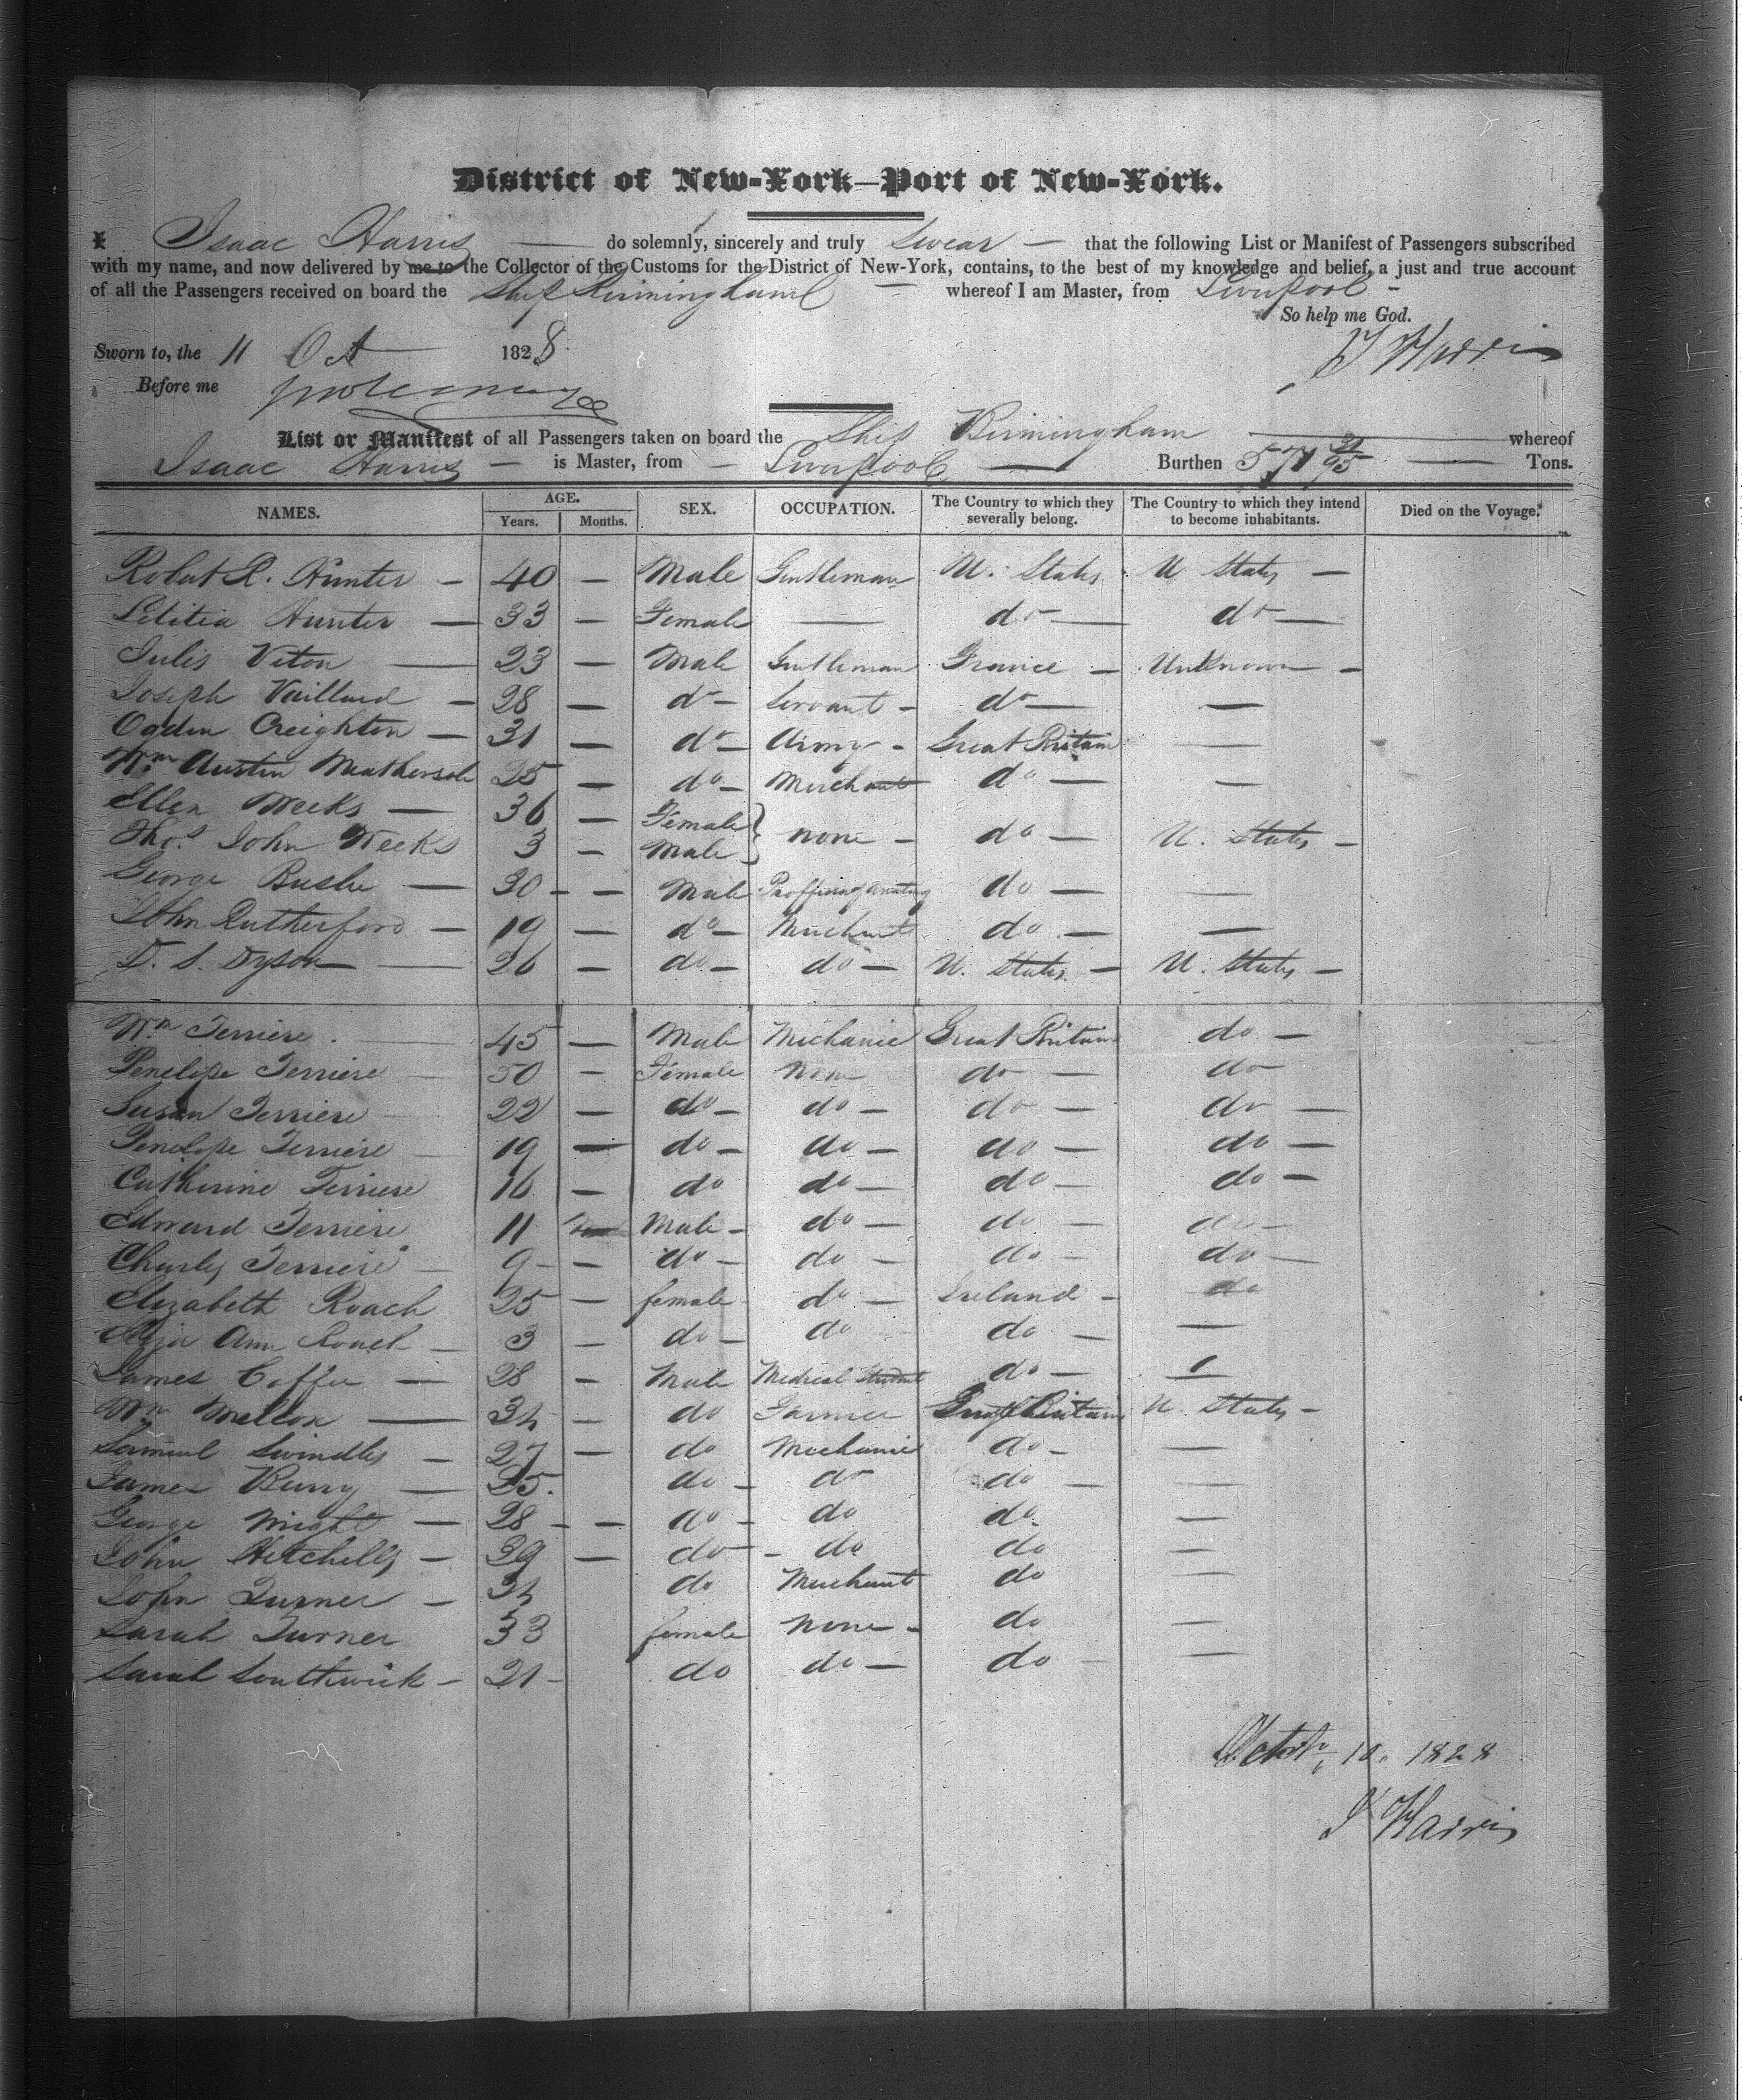 District of New-York—Port of New-York.
I Isaac Harris — do solemnly, sincerely and truly Swear — that the following List or Manifest of Passengers subscribed
with my name, and now delivered by me to the Collector of the Customs for the District of New-York, contains, to the best of my knowledge and belief, a just and true account
of all the Passengers received on board the Ship Birmingham — whereof I am Master, from Liverpool -
So help me God.
Sworn to, the 11 Oct 1828.
I Harris
Before me
List or Manifest of all Passengers taken on board the Ship Birmingham — whereof
Isaac Harris — is Master, from — Liverpool — Burthen 571 31/95 — Tons.
NAMES. AGE. Years. Months. SEX. OCCUPATION. The Country to which they severally belong. The Country to which they intend to become inhabitants. Died on the Voyage.
Robert R. Hunter — 40 — Male Gentleman U. States U States —
Letitia Hunter — 33 — Female — do — do —
Julis Viton — 23 — Male Gentleman France — Unknown —
Joseph Vaillard — 28 — do — Servant — do — —
Ogden Creighton — 31 — do — Army — Great Britain —
Wm Austin 25 — do — Merchant do — —
Ellen Weeks — 36 — Female } none — do — U. States —
Thos. John Weeks 3 — Male }
George Bushe — 30 - — Male do — —
John Rutherford — 19 — do — Merchant do — —
D. S. Dyson — 26 — do — do — U. States — U. States —
Wm Terriere — 45 — Male Mechanic Great Britain do —
Penelope Terriere — 50 — Female None do — do
Susan Terriere — 22 — do — do — do — do —
Penelope Terriere — 19 — do — do — do — do —
Catherine Terriere 16 — do do — do — do —
Edward Terriere 11 — Male — do — do — do —
Charles Terriere — 9 - — do — do — do — do —
Elizabeth Roach 25 — female do — Ireland — do
Eliza Ann Roach — 3 — do — do do — —
James Coffee — 28 — Male Medical Student do — —
Wm Mellon — 34 — do Farmer Great Britain U. States —
Samuel Swindles — 27 — do Mechanic do — —
James Berry — 25. do — do do — —
George Wright — 28 - — do — do do. —
John — 29 — do — do do —
John Turner — 34 do Merchant do —
Sarah Turner 33 female none — do —
Sarah Southwick — 21 - do do — do — —
October 10. 1828
I Harris